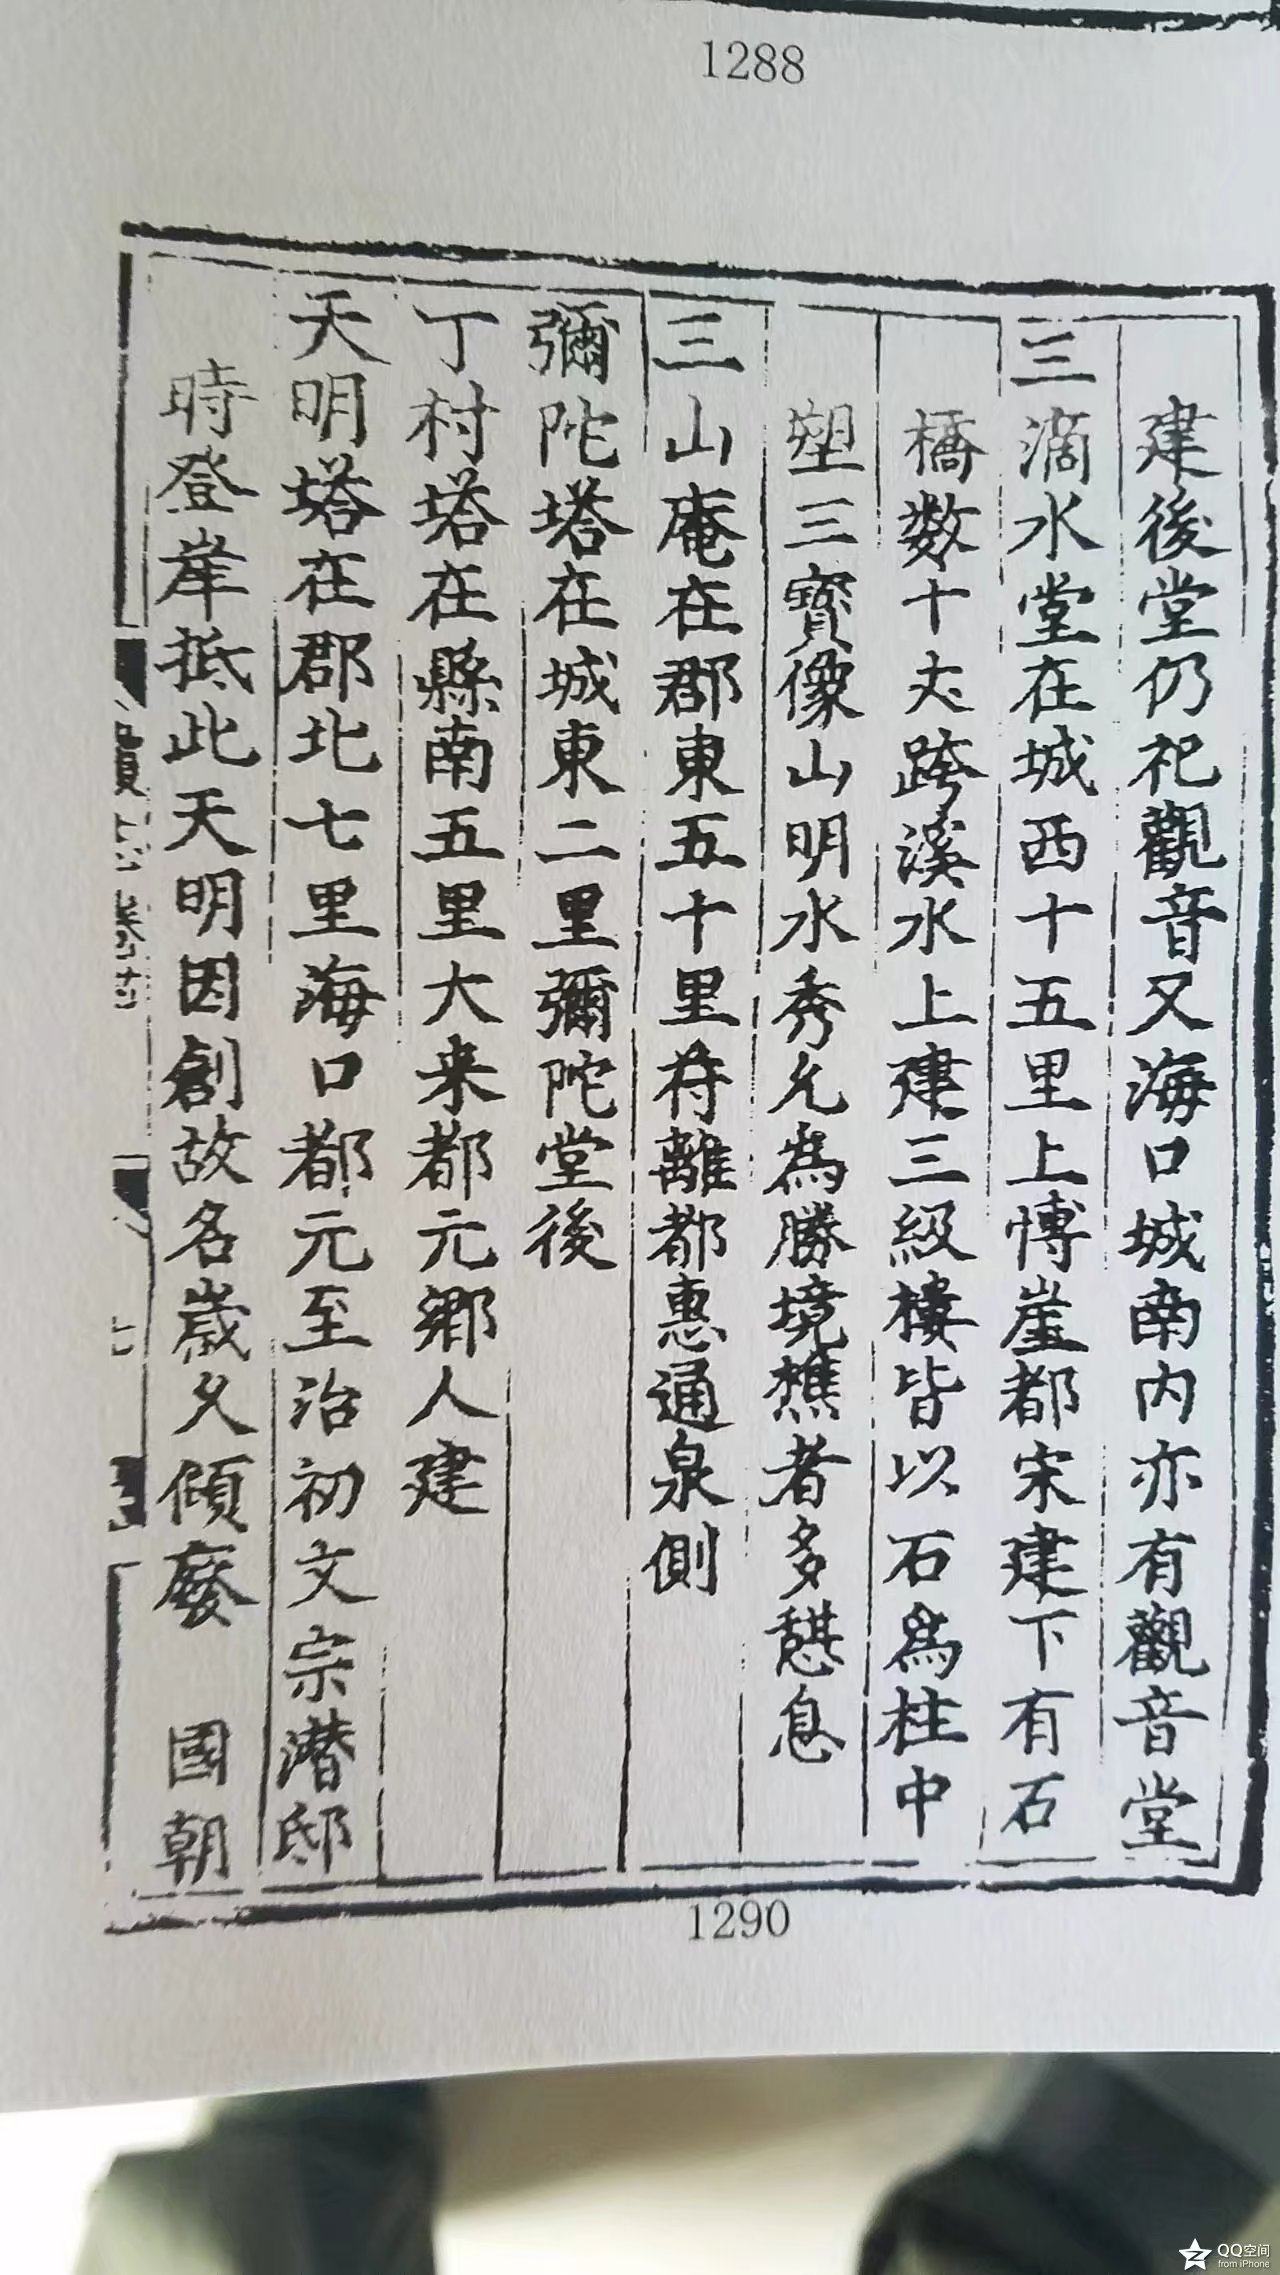 1288
建後堂仍祀觀音又海口城南内亦有觀音堂
三滴水堂在城西十五里上愽崖都宋建下有石
橋数十丈跨溪水上建三級樓皆以石為柱中
塑三寳像山明水秀允為勝境樵者多憇息
三山庵在郡東五十里符離都惠通泉側
彌陀塔在城東二里彌陀堂後
丁村塔在縣南五里大来都元鄉人建
天明塔在郡北七里海口都元至治初文宗潜邸
時登岸抵此天明因創故名歲久傾廢 國朝
1290
QQ空间
from iPhone